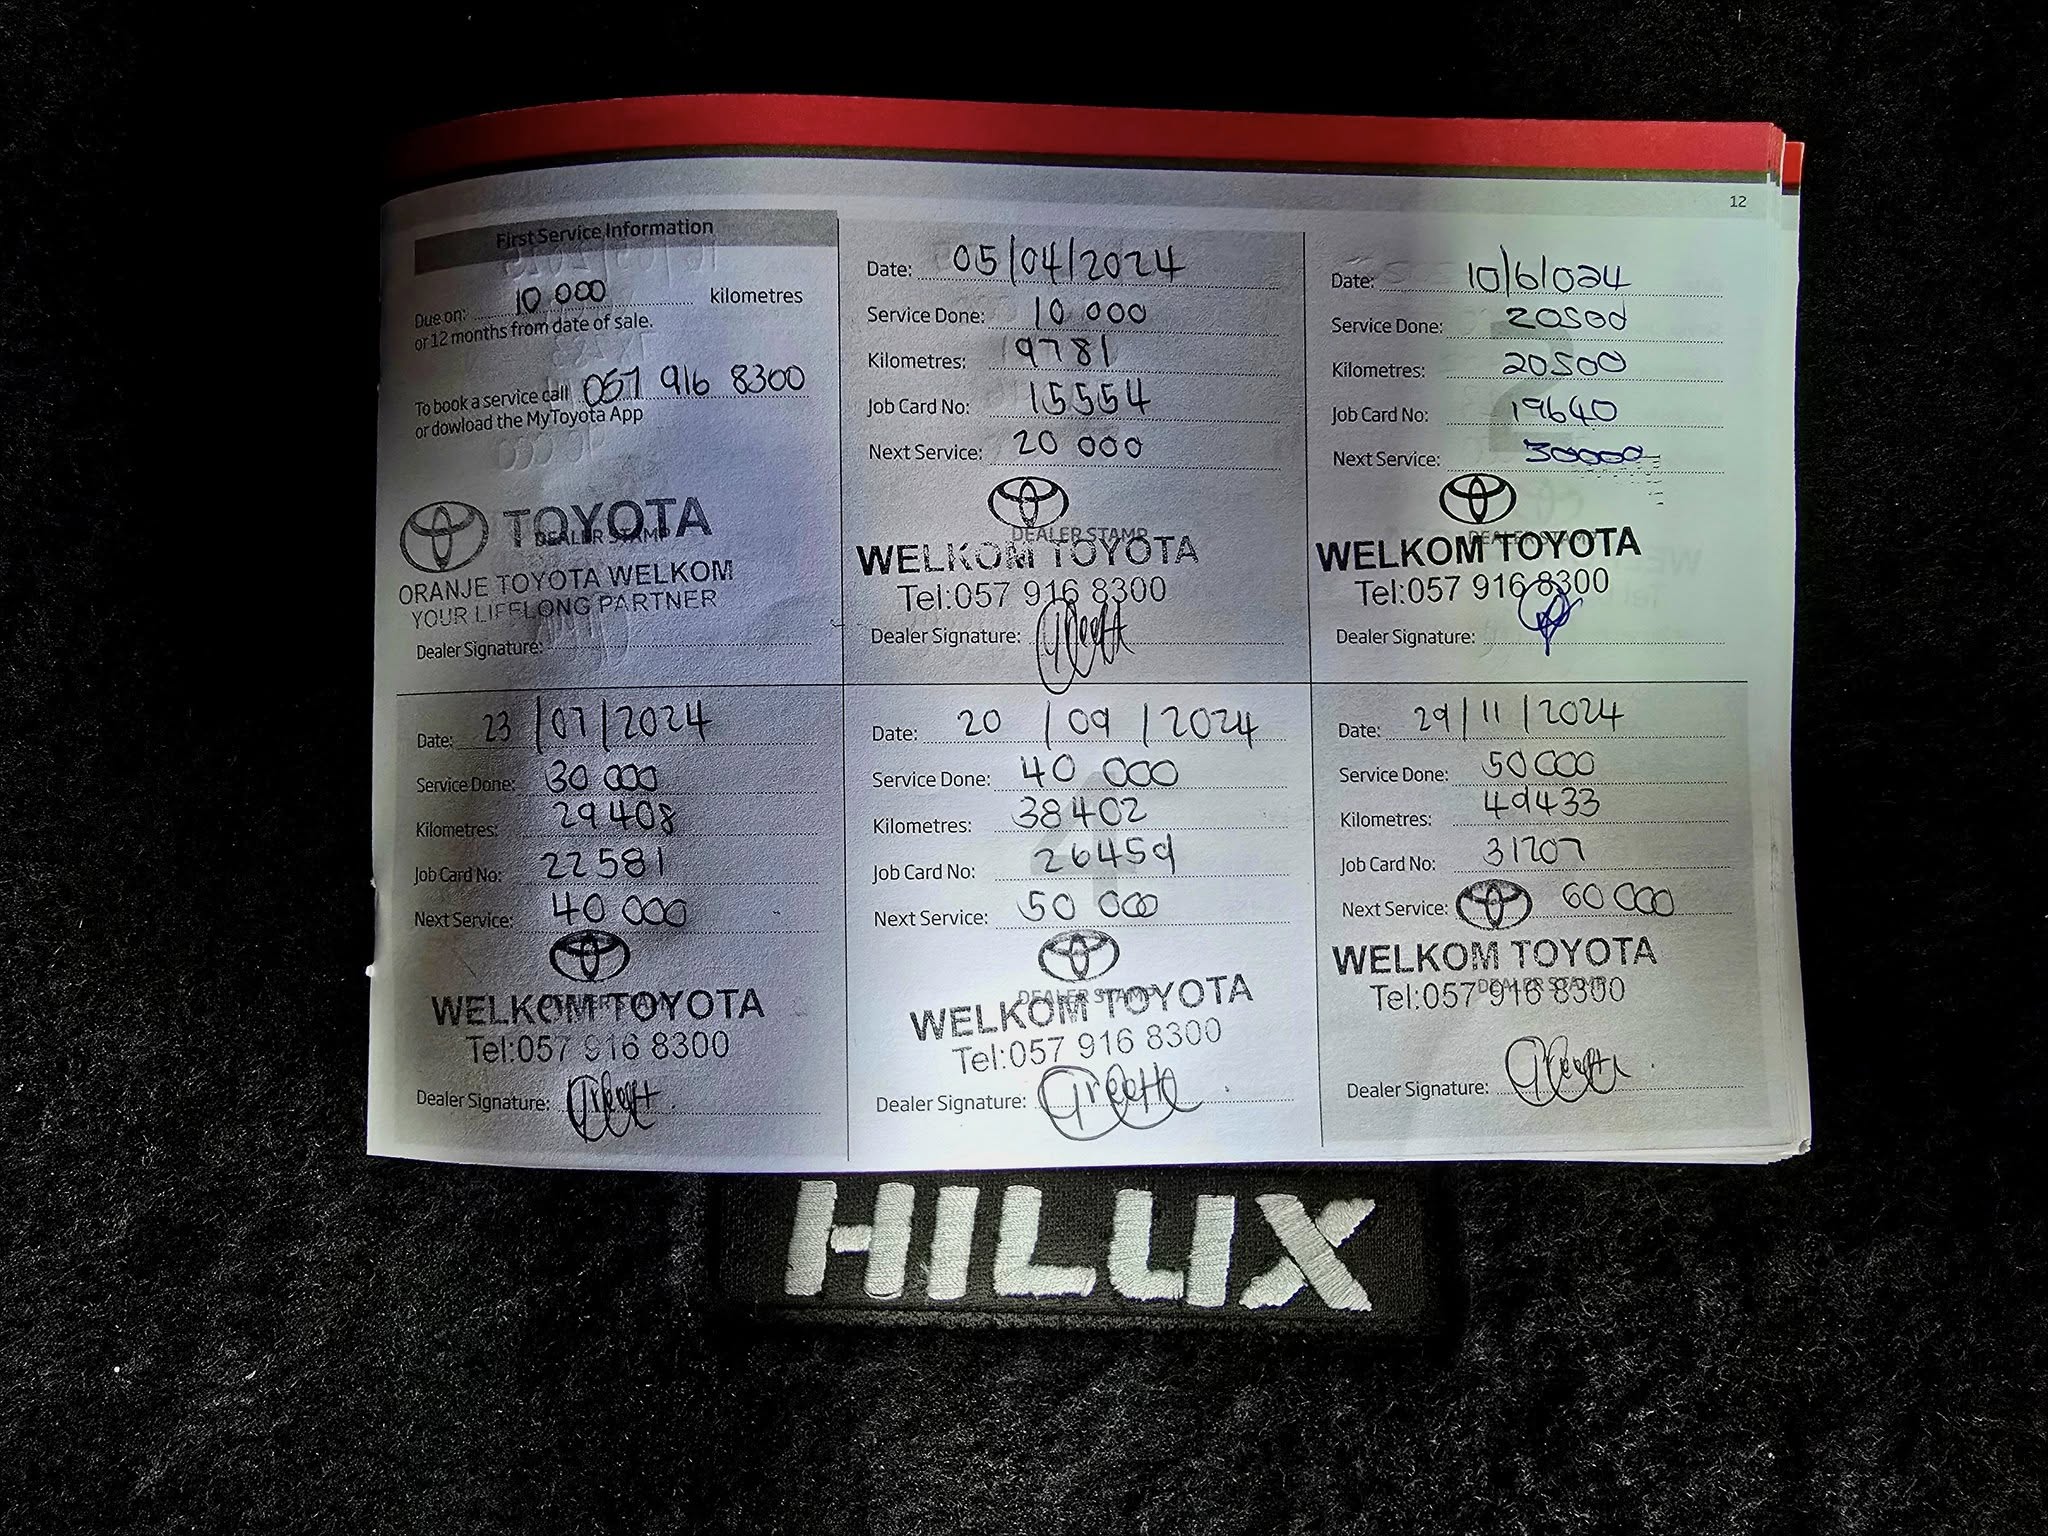 12
First Service Information
Due on: 10 000 kilometres
or 12 months from date of sale.
To book a service call 057 916 8300
or dowload the MyToyota App
TOYOTA
DEALER STAMP
ORANJE TOYOTA WELKOM
YOUR LIFELONG PARTNER
Dealer Signature:
Date: 05/04/2024
Service Done: 10 000
Kilometres: 9781
Job Card No: 15554
Next Service: 20 000
DEALER STAMP
WELKOM TOYOTA
Tel:057 916 8300
Dealer Signature:
Date: 10/6/024
Service Done: 20500
Kilometres: 20500
Job Card No: 19640
Next Service: 30000
DEALER STAMP
WELKOM TOYOTA
Tel:057 916 8300
Dealer Signature:
Date: 23/07/2024
Service Done: 30 000
Kilometres: 29408
Job Card No: 22581
Next Service: 40 000
DEALER STAMP
WELKOM TOYOTA
Tel:057 916 8300
Dealer Signature:
Date: 20/09/2024
Service Done: 40 000
Kilometres: 38402
Job Card No: 26459
Next Service: 50 000
DEALER STAMP
WELKOM TOYOTA
Tel:057 916 8300
Dealer Signature:
Date: 29/11/2024
Service Done: 50 000
Kilometres: 49433
Job Card No: 31207
Next Service: 60 000
WELKOM TOYOTA
DEALER STAMP
Tel:057 916 8300
Dealer Signature:
HILUX